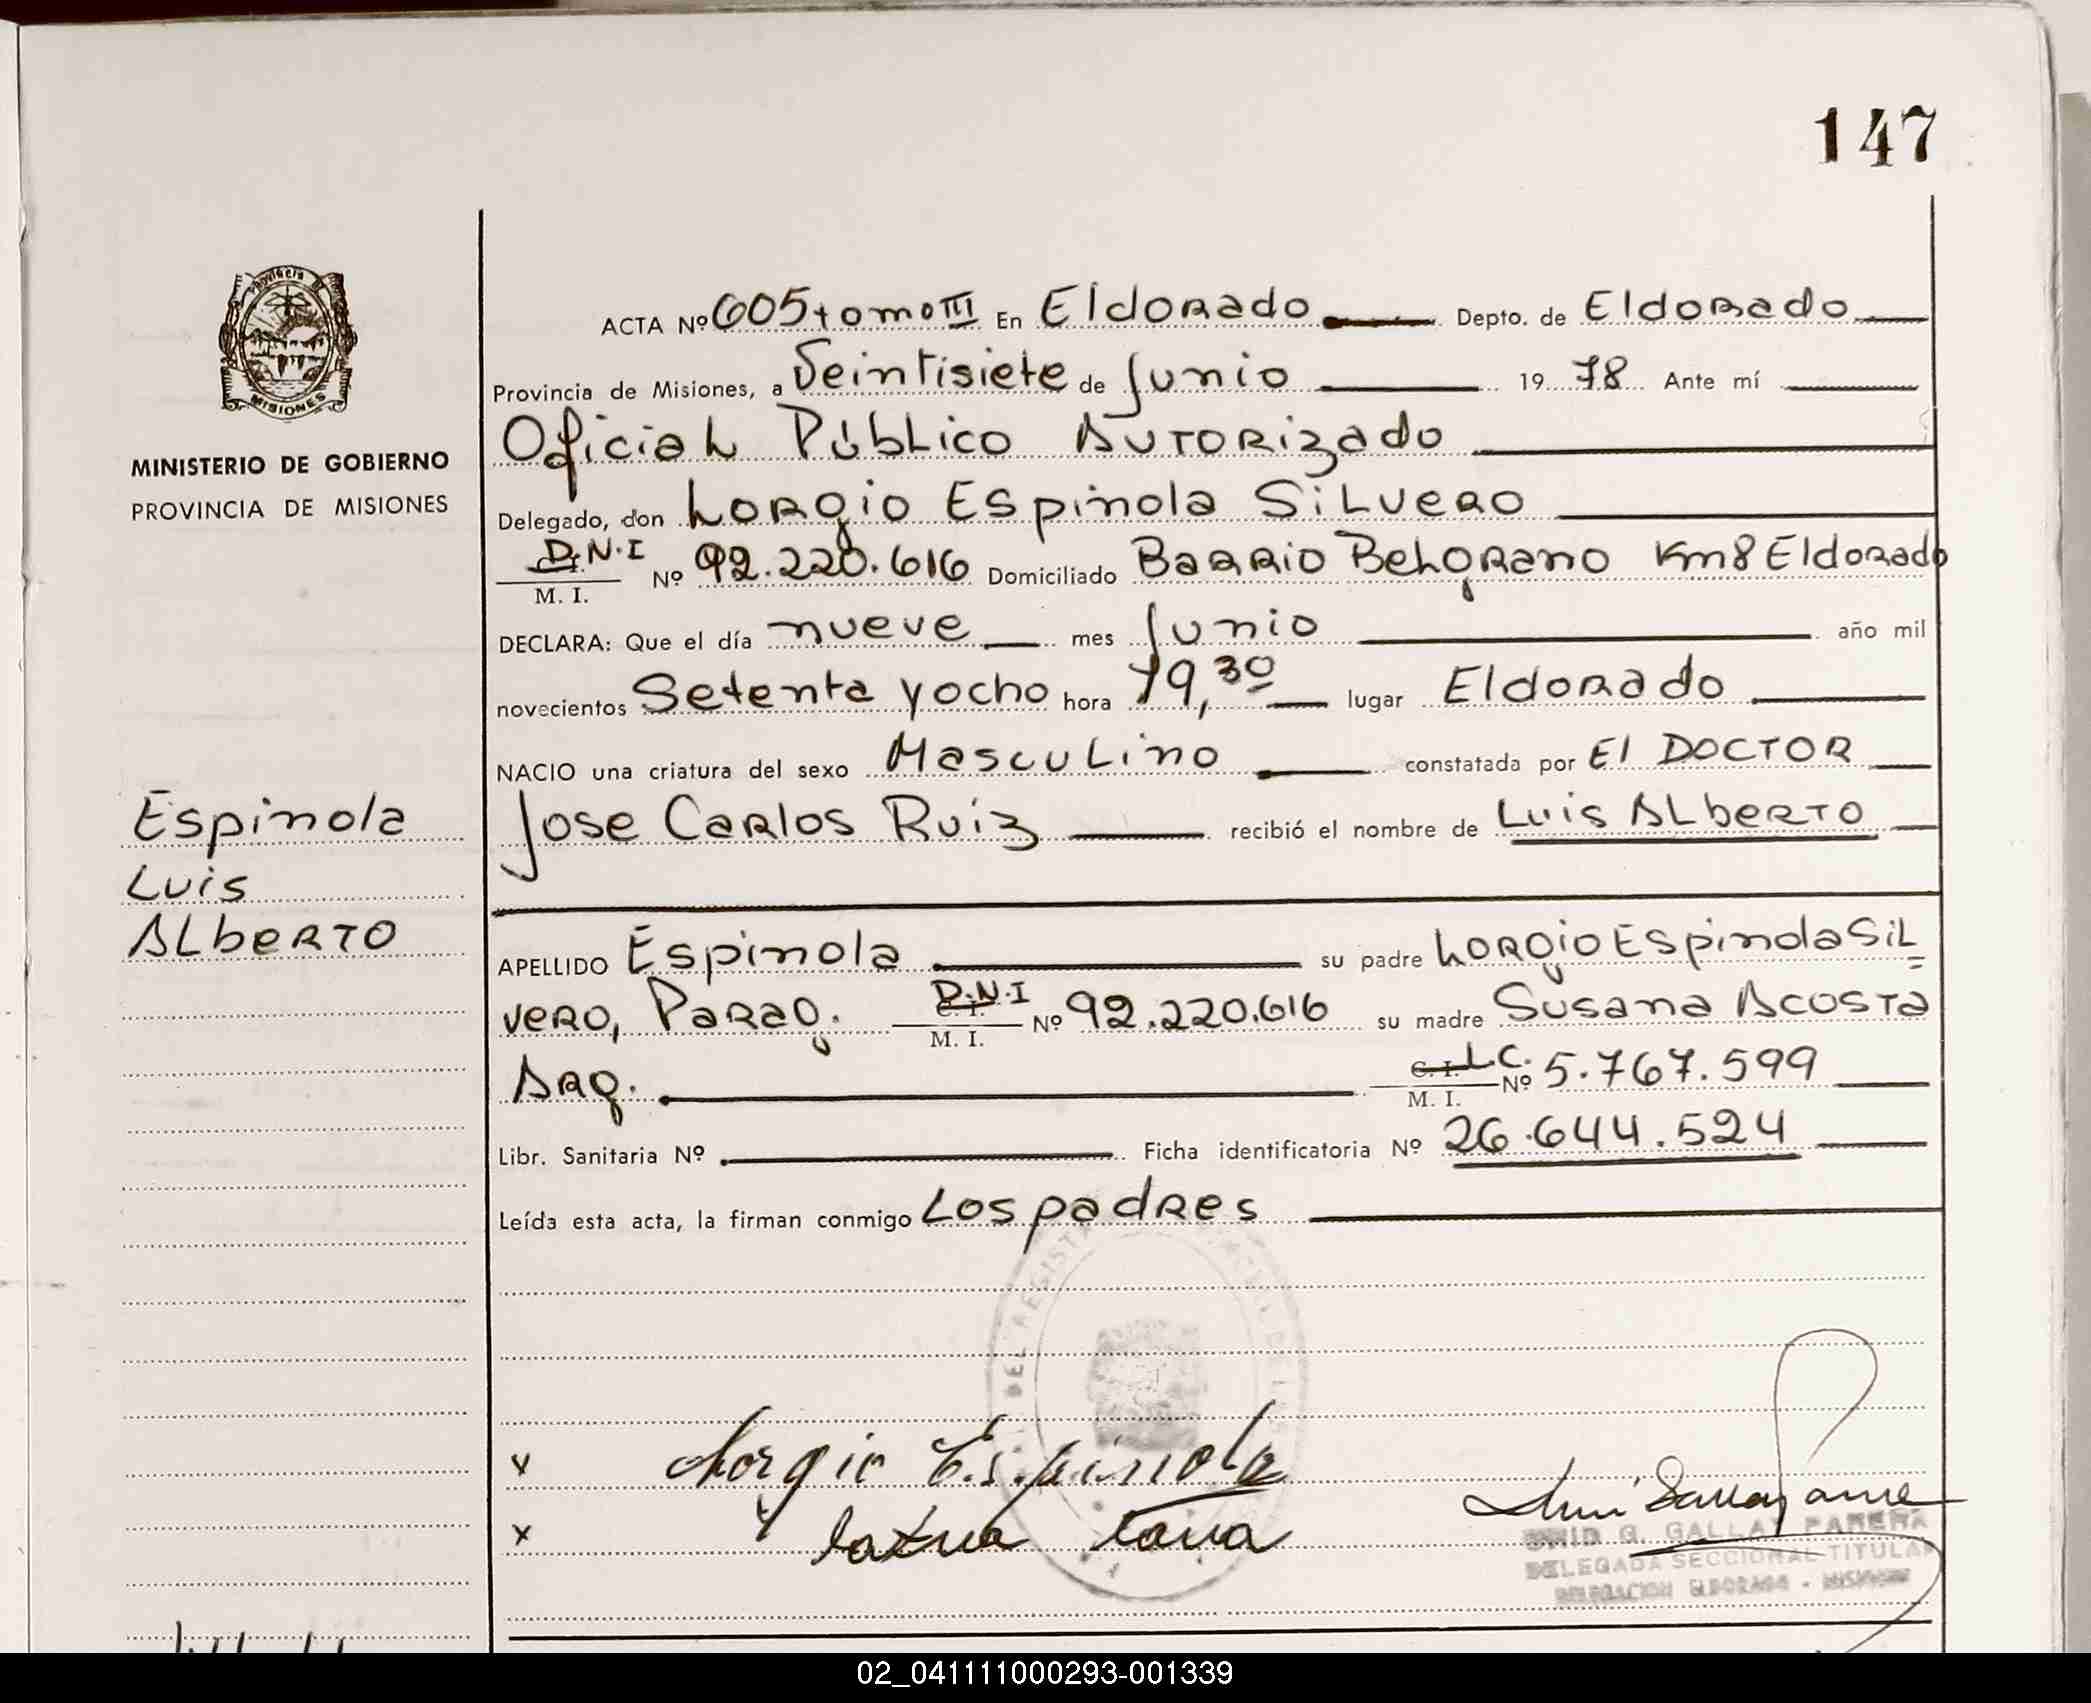 147
Provincia de
MISIONES
MINISTERIO DE GOBIERNO
PROVINCIA DE MISIONES
ACTA Nº 605 tomo III En Eldorado Depto. de Eldorado
Provincia de Misiones, a Veintisiete de Junio 1978 Ante mí
Oficial Público Autorizado
Delegado, don Lorgio Espinola Silvero
D.N.I
M. I. Nº 92.220.616 Domiciliado Barrio Belgrano Km 8 Eldorado
DECLARA: Que el día nueve mes Junio año mil
novecientos Setenta y ocho hora 19,30 lugar Eldorado
NACIO una criatura del sexo Masculino constatada por El DOCTOR
Jose Carlos Ruiz recibió el nombre de Luis Alberto
Espinola
Luis
Alberto
APELLIDO Espinola su padre Lorgio Espinola Sil
vero, Parag. D.N.I M. I. Nº 92.220.616 su madre Susana Acosta
Arg. C. I. L.C. M. I. Nº 5.767.599
Libr. Sanitaria Nº Ficha identificatoria Nº 26.644.524
Leída esta acta, la firman conmigo Los padres
DEL REGISTR
x Lorgio Espinola
x
G. GALLAY PARERA
DELEGADA SECCIONAL TITULAR
DELEGACION ELDORADO - MISIONES
02_041111000293-001339